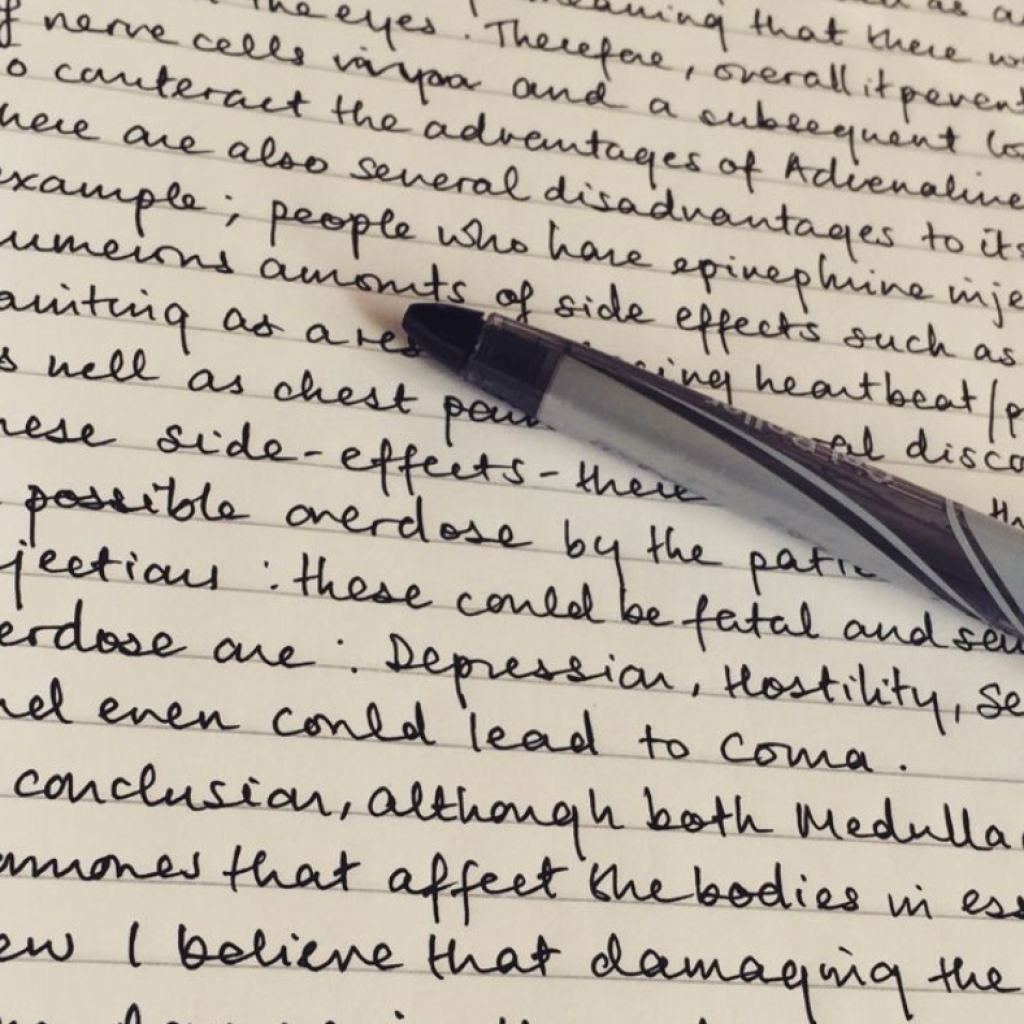 the eyes. Therefore, overall it pevent
nerve cells via and a subsequent
counteract the advantages of Adrenaline
here are also several disadvantages to its
example; people who have epinephrine inje
umerous amounts of side effects such as
ainting as a res ing heartbeat/p
s well as chest pain al disco
hese side-effects - there th
possible overdose by the patie
jections : these could be fatal and sev
erdose are : Depression, Hostility, Se
nd even could lead to coma.
conclusion, although both Medulla
rmones that affect the bodies in ess
ew I believe that damaging the